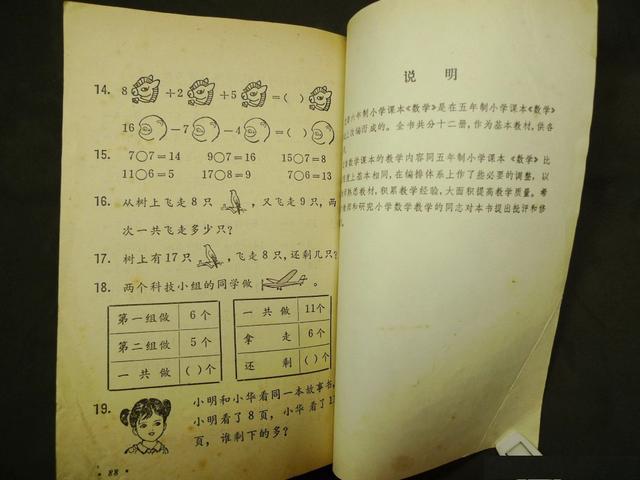 14. 8 +2 +5 =( )
16 -7 -4 =( )
15. 7○7=14 9○7=16 15○7=8
11○6=5 17○8=9 7○6=13
16. 从树上飞走8只 , 又飞走9只, 两
次一共飞走多少只?
17. 树上有17只 , 飞走8只, 还剩几只?
18. 两个科技小组的同学做 。
第一组做 6个
第二组做 5个
一共做 ( )个
一共做 11个
拿走 6个
还剩 ( )个
19. 小明和小华看同一本故事书,
小明看了8页, 小华看了1
页, 谁剩下的多?
·88·
说明
六年制小学课本《数学》是在五年制小学课本《数学》
上改编而成的。全书共分十二册, 作为基本教材, 供各
数学课本的教学内容同五年制小学课本《数学》比
度上基本相同, 在编排体系上作了些必要的调整, 以
熟悉教材, 积累教学经验, 大面积提高教学质量。希
和研究小学数学教学的同志对本书提出批评和修